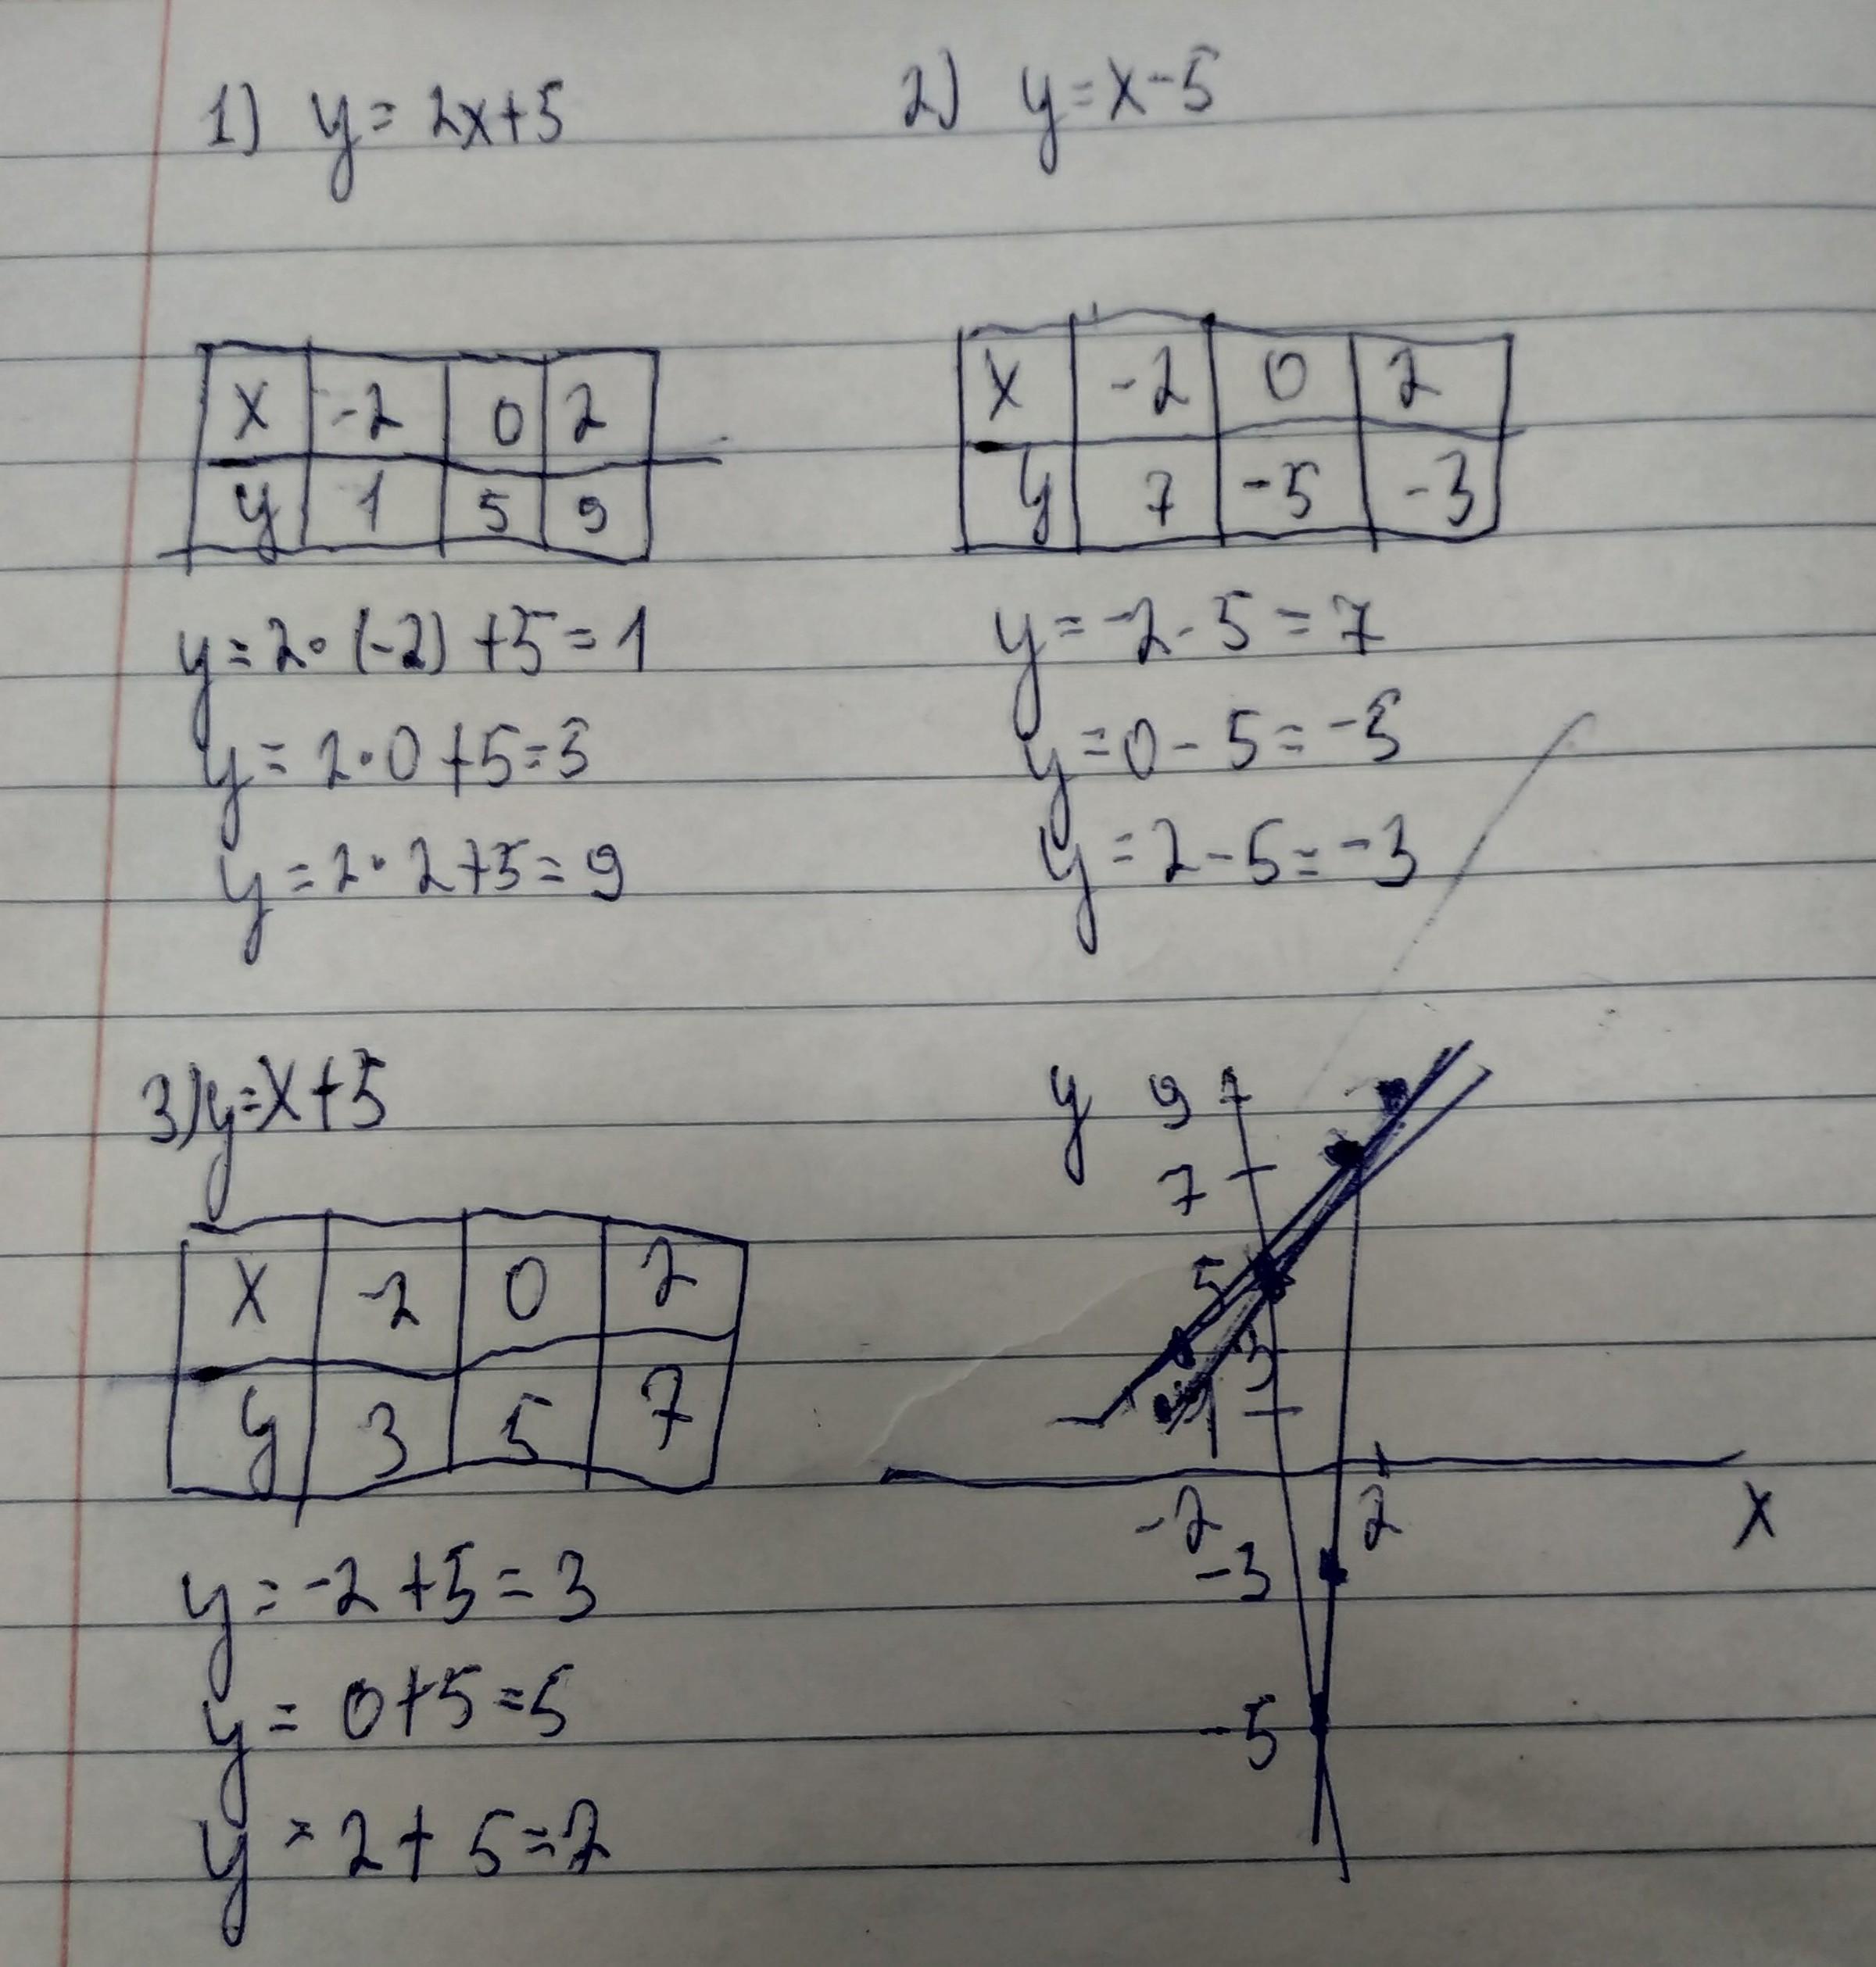 1) y = 2x+5
2) y=x-5
x -2 0 2
y 1 5 9
x -2 0 2
y 7 -5 -3
y=2·(-2)+5=1
y=2·0+5=5
y=2·2+5=9
y=-2-5=7
y=0-5=-5
y=2-5=-3
3) y=x+5
x -2 0 2
y 3 5 7
y=-2+5=3
y=0+5=5
y=2+5=2
y 9
7
5
3
1
-2 2 x
-3
-5